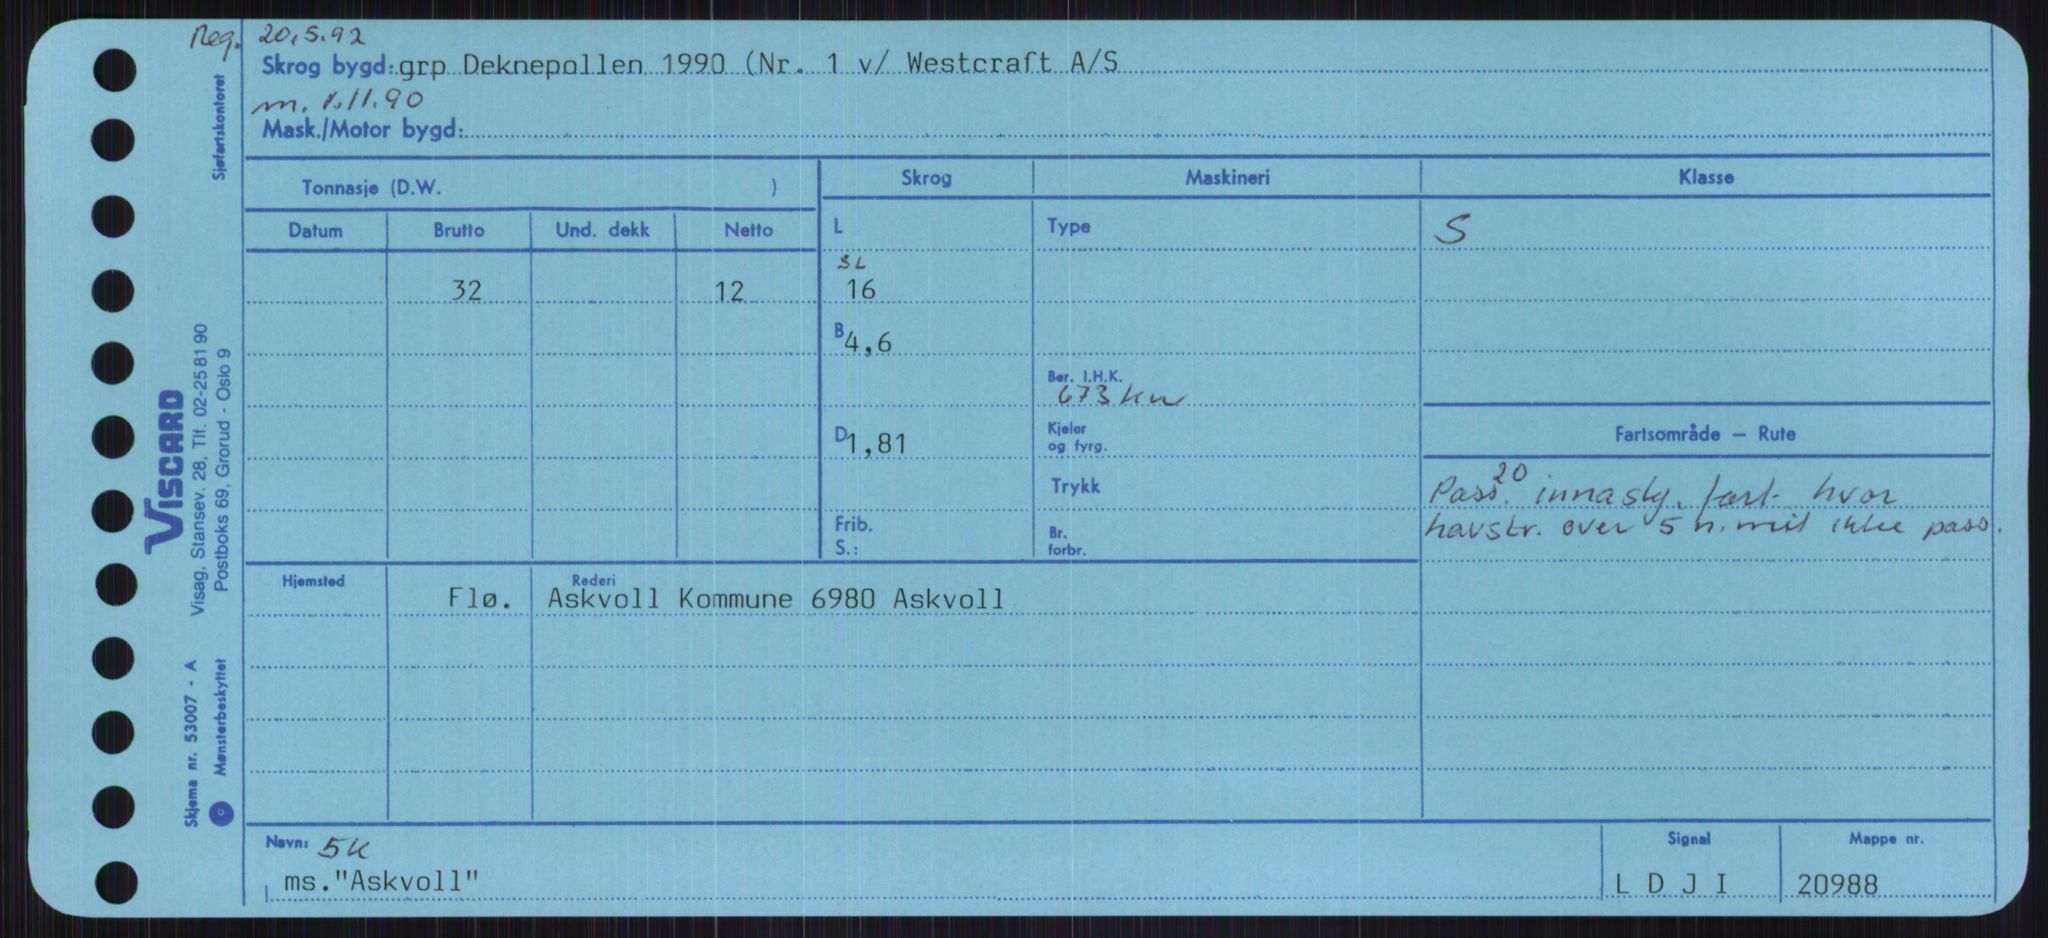 Reg. 20.5.92
Skrog bygd: grp Deknepollen 1990 (Nr. 1 v/ Westcraft A/S
m. 1.11.90
Mask./Motor bygd:
Sjøfartskontoret
Tonnasje (D.W. )
Skrog
Maskineri
Klasse
Datum
Brutto
Und. dekk
Netto
L
Type
S
SL
32
12
16
B 4,6
Ber. I.H.K.
673 kw
D 1,81
Kjeler
og fyrg.
Fartsområde – Rute
Trykk
Pass. 20 innaskj. fart hvor
havstr. over 5 n.mil ikke pass.
Frib.
S.:
Br.
forbr.
Hjemsted
Rederi
Flø. Askvoll Kommune 6980 Askvoll
VISCARD
Visag, Stansev. 28, Tlf. 02-25 81 90
Postboks 69, Grorud - Oslo 9
Skjema nr. 53007 - A
Mønsterbeskyttet
Navn: 5k
ms."Askvoll"
Signal
L D J I
Mappe nr.
20988